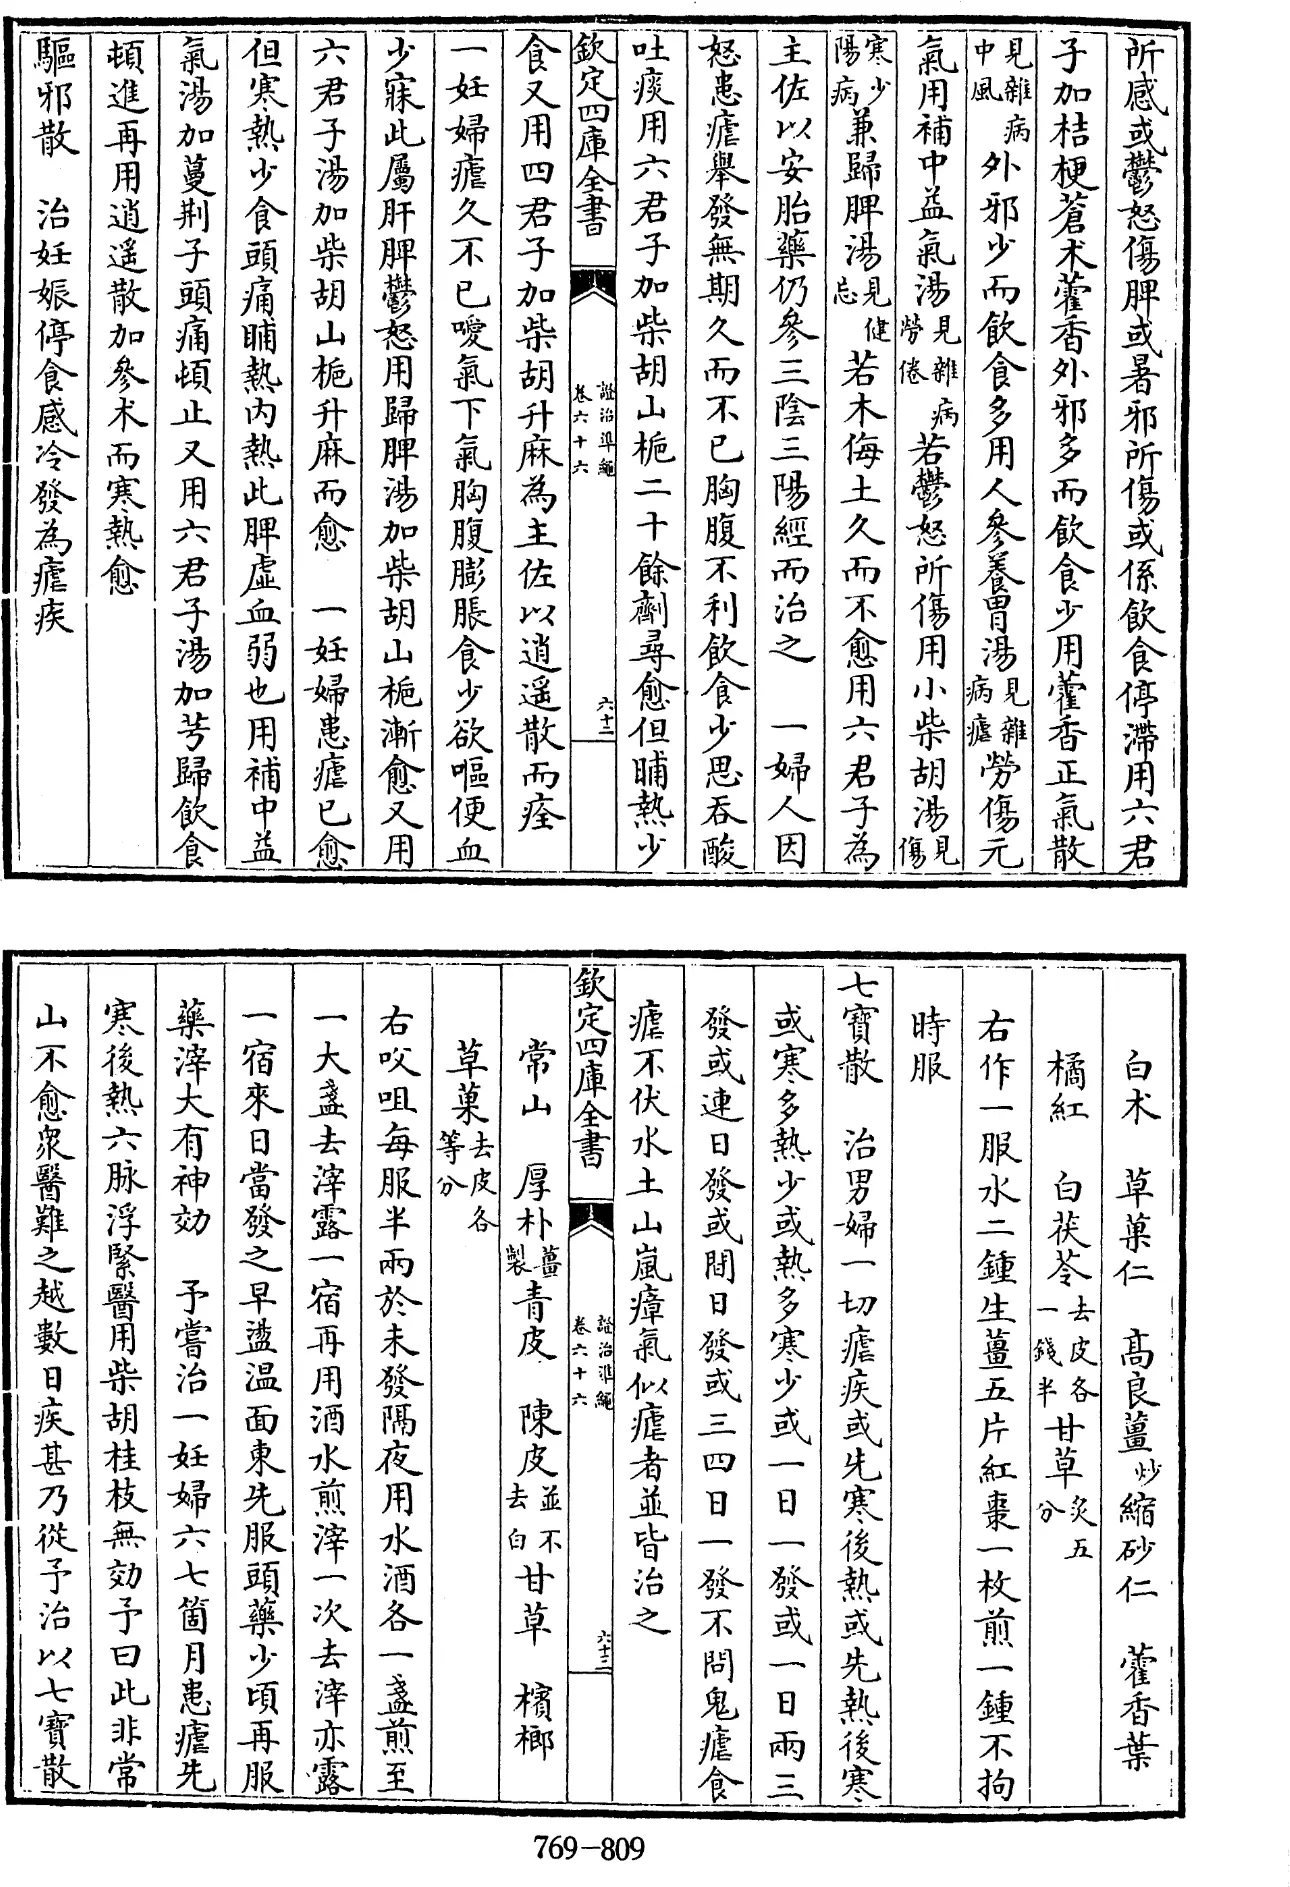 所感或鬱怒傷脾或暑邪所傷或係飲食停滯用六君
子加桔梗蒼术藿香外邪多而飲食少用藿香正氣散
見雜病中風外邪少而飲食多用人參養胃湯見雜病瘧勞傷元
氣用補中益氣湯見雜病勞倦若鬱怒所傷用小柴胡湯見傷
寒少陽病兼歸脾湯見健忘若木侮土久而不愈用六君子為
主佐以安胎藥仍參三陰三陽經而治之　一婦人因
怒患瘧舉發無期久而不已胸腹不利飲食少思吞酸
吐痰用六君子加柴胡山梔二十餘劑尋愈但晡熱少
欽定四庫全書
證治準繩
卷六十六
六十三
食又用四君子加柴胡升麻為主佐以逍遥散而痊
一妊婦瘧久不已噯氣下氣胸腹膨脹食少欲嘔便血
少寐此屬肝脾鬱怒用歸脾湯加柴胡山梔漸愈又用
六君子湯加柴胡山梔升麻而愈　一妊婦患瘧已愈
但寒熱少食頭痛晡熱内熱此脾虛血弱也用補中益
氣湯加蔓荆子頭痛頓止又用六君子湯加芎歸飲食
頓進再用逍遥散加參术而寒熱愈
驅邪散　治妊娠停食感冷發為瘧疾
白术　草菓仁　髙良薑炒縮砂仁　藿香葉
橘紅　白茯苓去皮各一錢半甘草炙五分
右作一服水二鍾生薑五片紅棗一枚煎一鍾不拘
時服
七寶散　治男婦一切瘧疾或先寒後熱或先熱後寒
或寒多熱少或熱多寒少或一日一發或一日兩三
發或連日發或間日發或三四日一發不問鬼瘧食
瘧不伏水土山嵐瘴氣似瘧者並皆治之
欽定四庫全書
證治準繩
卷六十六
六十三
常山　厚朴薑製青皮　陳皮並不去白甘草　檳榔
草菓去皮各等分
右㕮咀每服半兩於未發隔夜用水酒各一盞煎至
一大盞去滓露一宿再用酒水煎滓一次去滓亦露
一宿來日當發之早盪温面東先服頭藥少頃再服
藥滓大有神効　予嘗治一妊婦六七箇月患瘧先
寒後熱六脉浮緊醫用柴胡桂枝無効予曰此非常
山不愈衆醫難之越數日疾甚乃從予治以七寶散
769-809